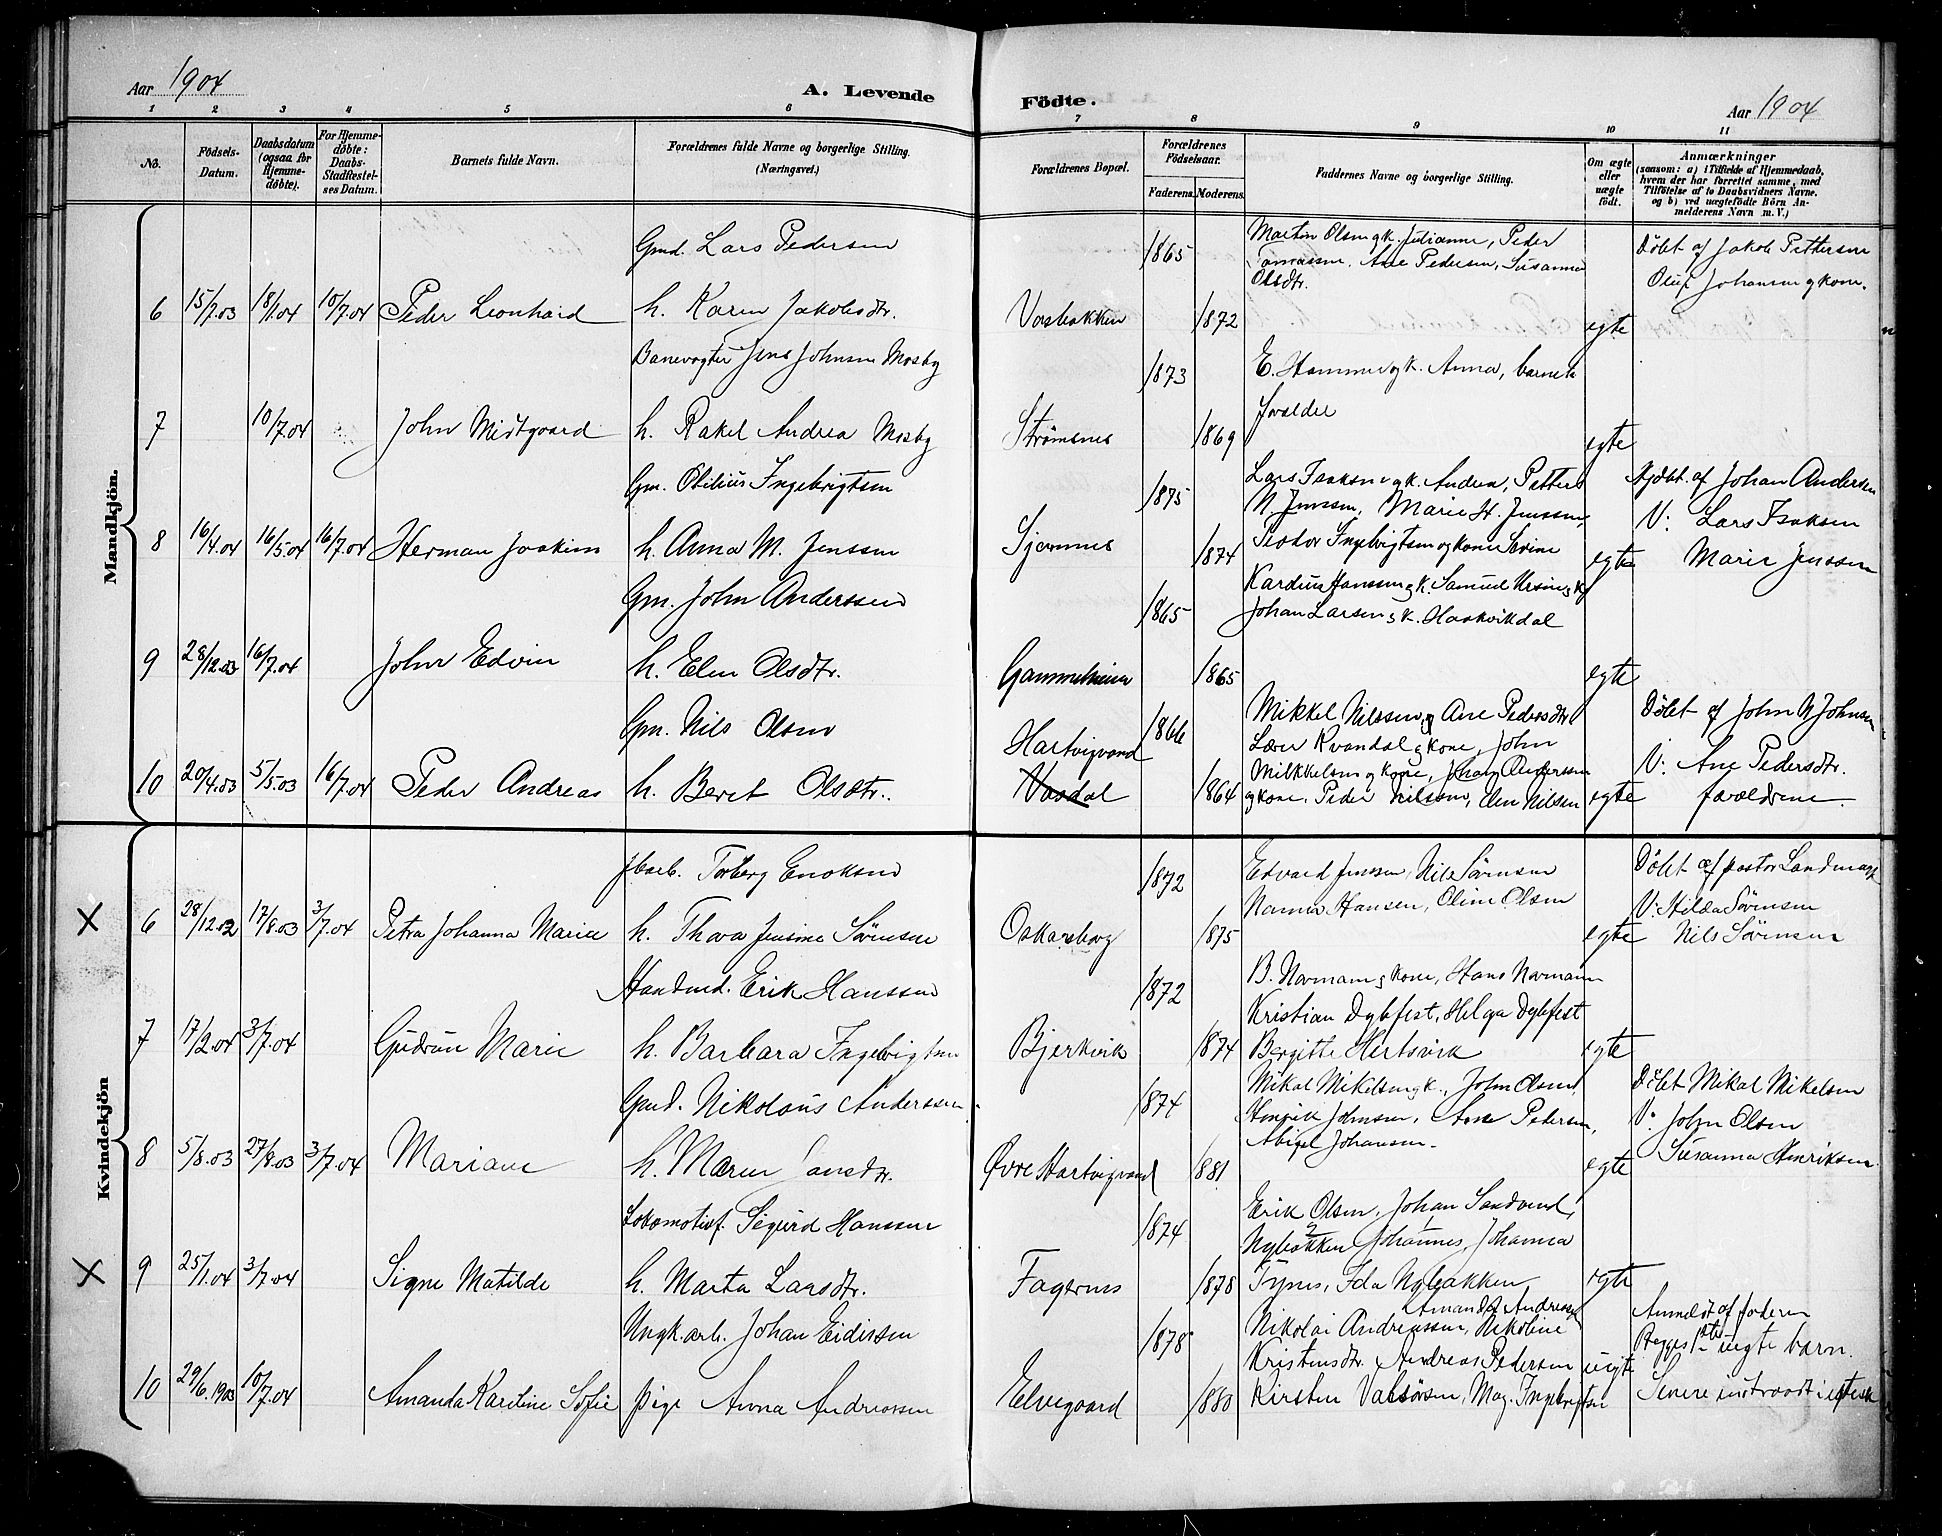 Aar 1904
A. Levende
Födte.
Aar 1904
1 2 3 4 5 6 7 8 9 10 11
No.
Födsels-Datum.
Daabsdatum (ogsaa for Hjemme-döbte).
For Hjemme-döbte: Daabs-Stadfestel-ses Datum.
Barnets fulde Navn.
Forældrenes fulde Navne og borgerlige Stilling.
(Næringsvei.)
Forældrenes Bopæl.
Forældrenes Födselsaar.
Faderens. Moderens.
Faddernes Navne og borgerlige Stilling.
Om ægte eller uægte födt.
Anmærkninger
(saasom: a) i Tilfælde af Hjemmedaab,
hvem der har forrettet samme, med
Tilföielse af to Daabsvidners Navne.
og b) ved uægtefödte Börn An-
melderens Navn m. V.)
Mandkjön.
Gmd. Lars Pedersen 1865 Martin Olsen gk. Julianne, Peder Døbt af Jakob Pettersen
Ane Pedersen, Susanna
Olsdtr. Oluf Johansen g kone.
6 15/7.03 18/1.04 10/7.04 Peder Leonhard h. Karen Jakobsdtr. Vasbakken 1872 egte
Banevogter Jens Johnsen Mosby 1873 E. Hammer gk. Anna, barnets
forældre
7 10/7.04 John Midtgaard h. Rakel Andrea Mosby Strømsnes 1869 egte
Gm. Otilius Ingebrigtsen 1875 Lars Isaksen gk. Andrea, Petters Hjdbt. af Johan Andersen
N. Jenssen, Marie H. Jenssen, V: Lars Isaksen
8 16/4.04 16/5.04 16/7.04 Herman Joakim h. Anna M. Jenssen 1874 Teodor Ingebrigtsen og kone Serine egte Marie Jenssen
Gm. John Anderssen 1865 Kardius Hanssen gk. Samuel
Johan Larsen gk. Haakvikdal
9 28/12.03 16/7.04 John Edvin h. Elen Olsdtr. 1865 egte
Gm. Nils Olsen Hartvigvand 1866 Mikkel Nilssen, g Ane Pedersdtr Døbt af John Johnsen
Lærer Kvandal g kone, John V: Ane Pedersdtr.
10 20/4.03 5/5.03 16/7.04 Peder Andreas h. Beret Olsdtr. Vasdal 1864 Mikkelsen g kone,
g kone. Peder Nilssen, Elen Nilsen egte forældrene.
Kvindekjön
Torberg Enoksen 1872 Edvard Jenssen, Nils Sørensen Døbt af pastor Landmark
Nanna Hansen, Oline Olsen V: Hilda Sørensen
X 6 28/12.02 17/8.03 3/7.04 Petra Johanna Marie h. Thora Jensine Sørensen Oskarsborg 1875 egte Nils Sørensen
Erik Hanssen 1872 B. Normann g kone, Hans Normann
Kristian Dybfest, Helga Dybfest
7 17/2.04 3/7.04 Gudrun Marie h. Barbara Ingebrigtsen Bjerkvik 1874 Bergitte Hertsvik egte
Gmd. Nikolaus Anderssen. 1874 Mikal Mikelsen gk., John Olsen, Døbt Mikal Mikelsen
Henrik Johnsen, Ane Pedersen, V: John Olsen
Abigel Johansen. Susanna Henriksen.
8 5/8.03 27/8.03 3/7.04 Mariane h. Maren Jonsdtr. Øvre Hartvigvand 1881 egte
Lokomotivf. Sigurd Hanssen 1874 Erik Olsen, Johan Sandvend,
Nybakken Johannes, Johanna
X 9 25/1.04 3/7.04 Signe Matilde h. Marta Larsdtr. Fagernes 1878 Ida Nybakken egte
Ungk. arb. Johan Eidissen 1878 Nikolai Andreassen, Nikoline Amanda Andreas Anmeldt af faderen
Kristensdtr. Andreas Pedersen Begges 1ste uegte barn.
10 29/6.1903 10/7.04 Amanda Karoline Sofie pige Anna Andreassen Elvegaard 1880 Kirsten Valsørsen, Mag. Ingebrigtsen uegte Senere indtraadt i egtesk